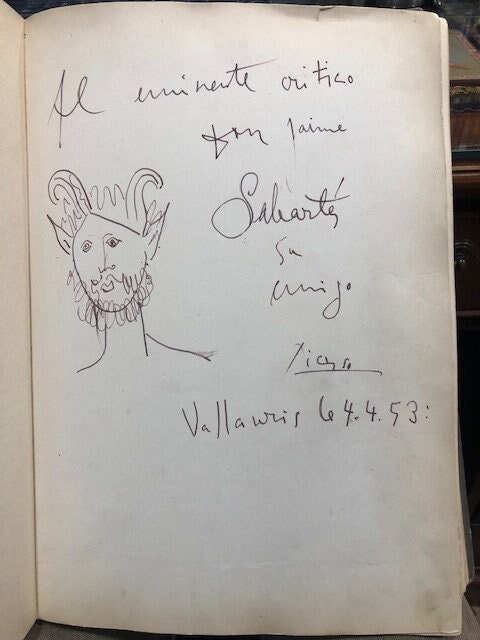 Al eminente critico
don Jaime
Sabartés
su
amigo
Picasso
Vallauris le 4.4.53: